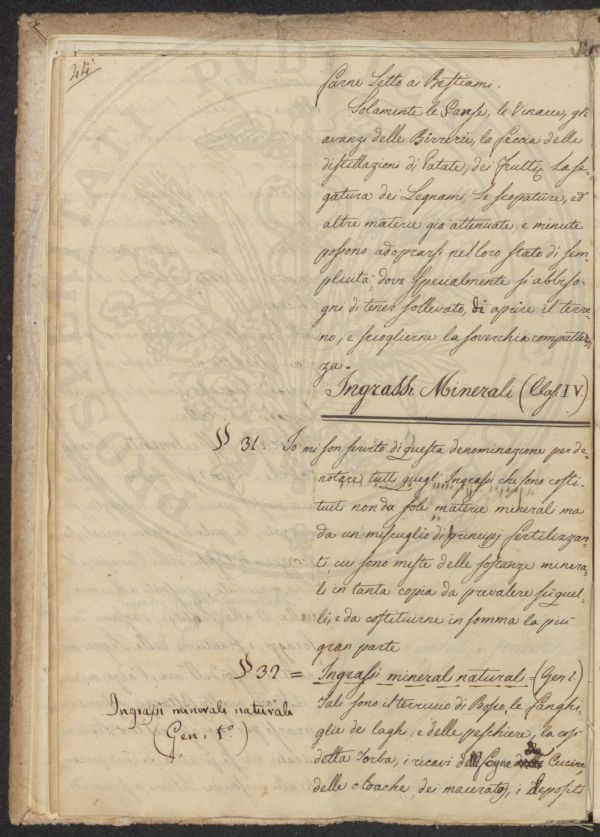 44
farne Letto ai Bestiami.
Solamente le Sanse, le Vinacce, gli
avanzi delle Birrerie, la feccia delle
distillazioni di Patate, dei frutti, la se=
gatura dei Legnami, Le scopature, ed
altre materie già attenuate, e minute
possono adoprarsi nel loro stato di sem
plicità, dove specialmente si abbiso=
gni di tener sollevato, di aprire il terre=
no, e sciogliere la soverchia compattez=
za.
Ingrassi Minerali (Clas. IV.)
§§ 31. Io mi son servito di questa denominazione per de=
notare tutti quegli Ingrassi che sono costi=
tuiti non da sole materie minerali ma
da un miscuglio di principj fertilizzan=
ti, cui sono miste delle sostanze minera=
li in tanta copia da prevalere su quel=
li, e da costituirne in somma la più
gran parte
§§ 32 = Ingrassi minerali naturali = (Gen I.)
Ingrassi minerali naturali
(Gen. 1.°)
Tali sono il terriccio di Bosco, le fanghi=
glie dei laghi, e delle peschiere, la così
detta Torba, i ricavi delle fogne da Cucine,
delle cloache dei maceratoj, i depositi